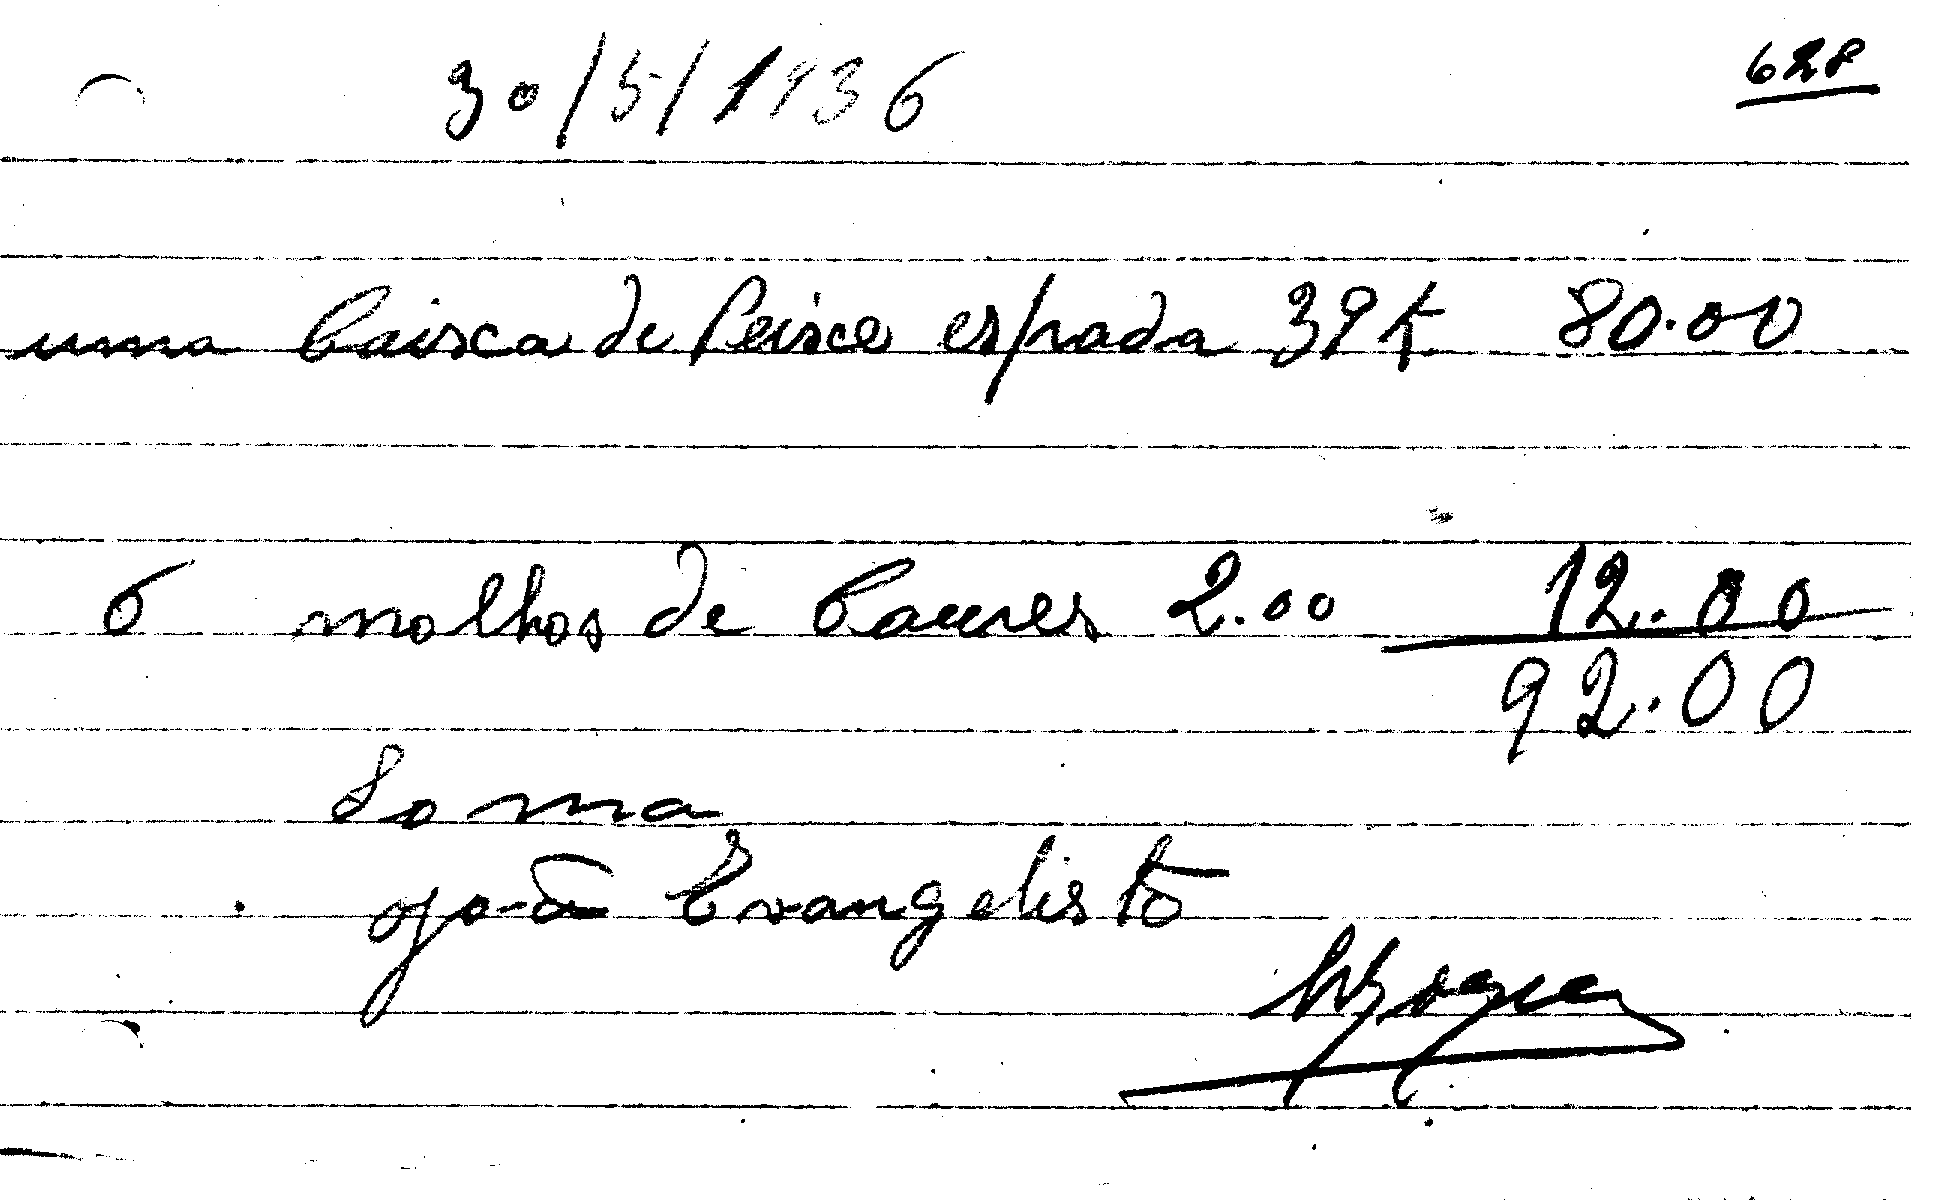 628
30/5/1936
uma Caixca de Peixce espada 39K 80.00
6 molhos de Couves 2.00 12.00
92.00
Soma
João Evangelisto